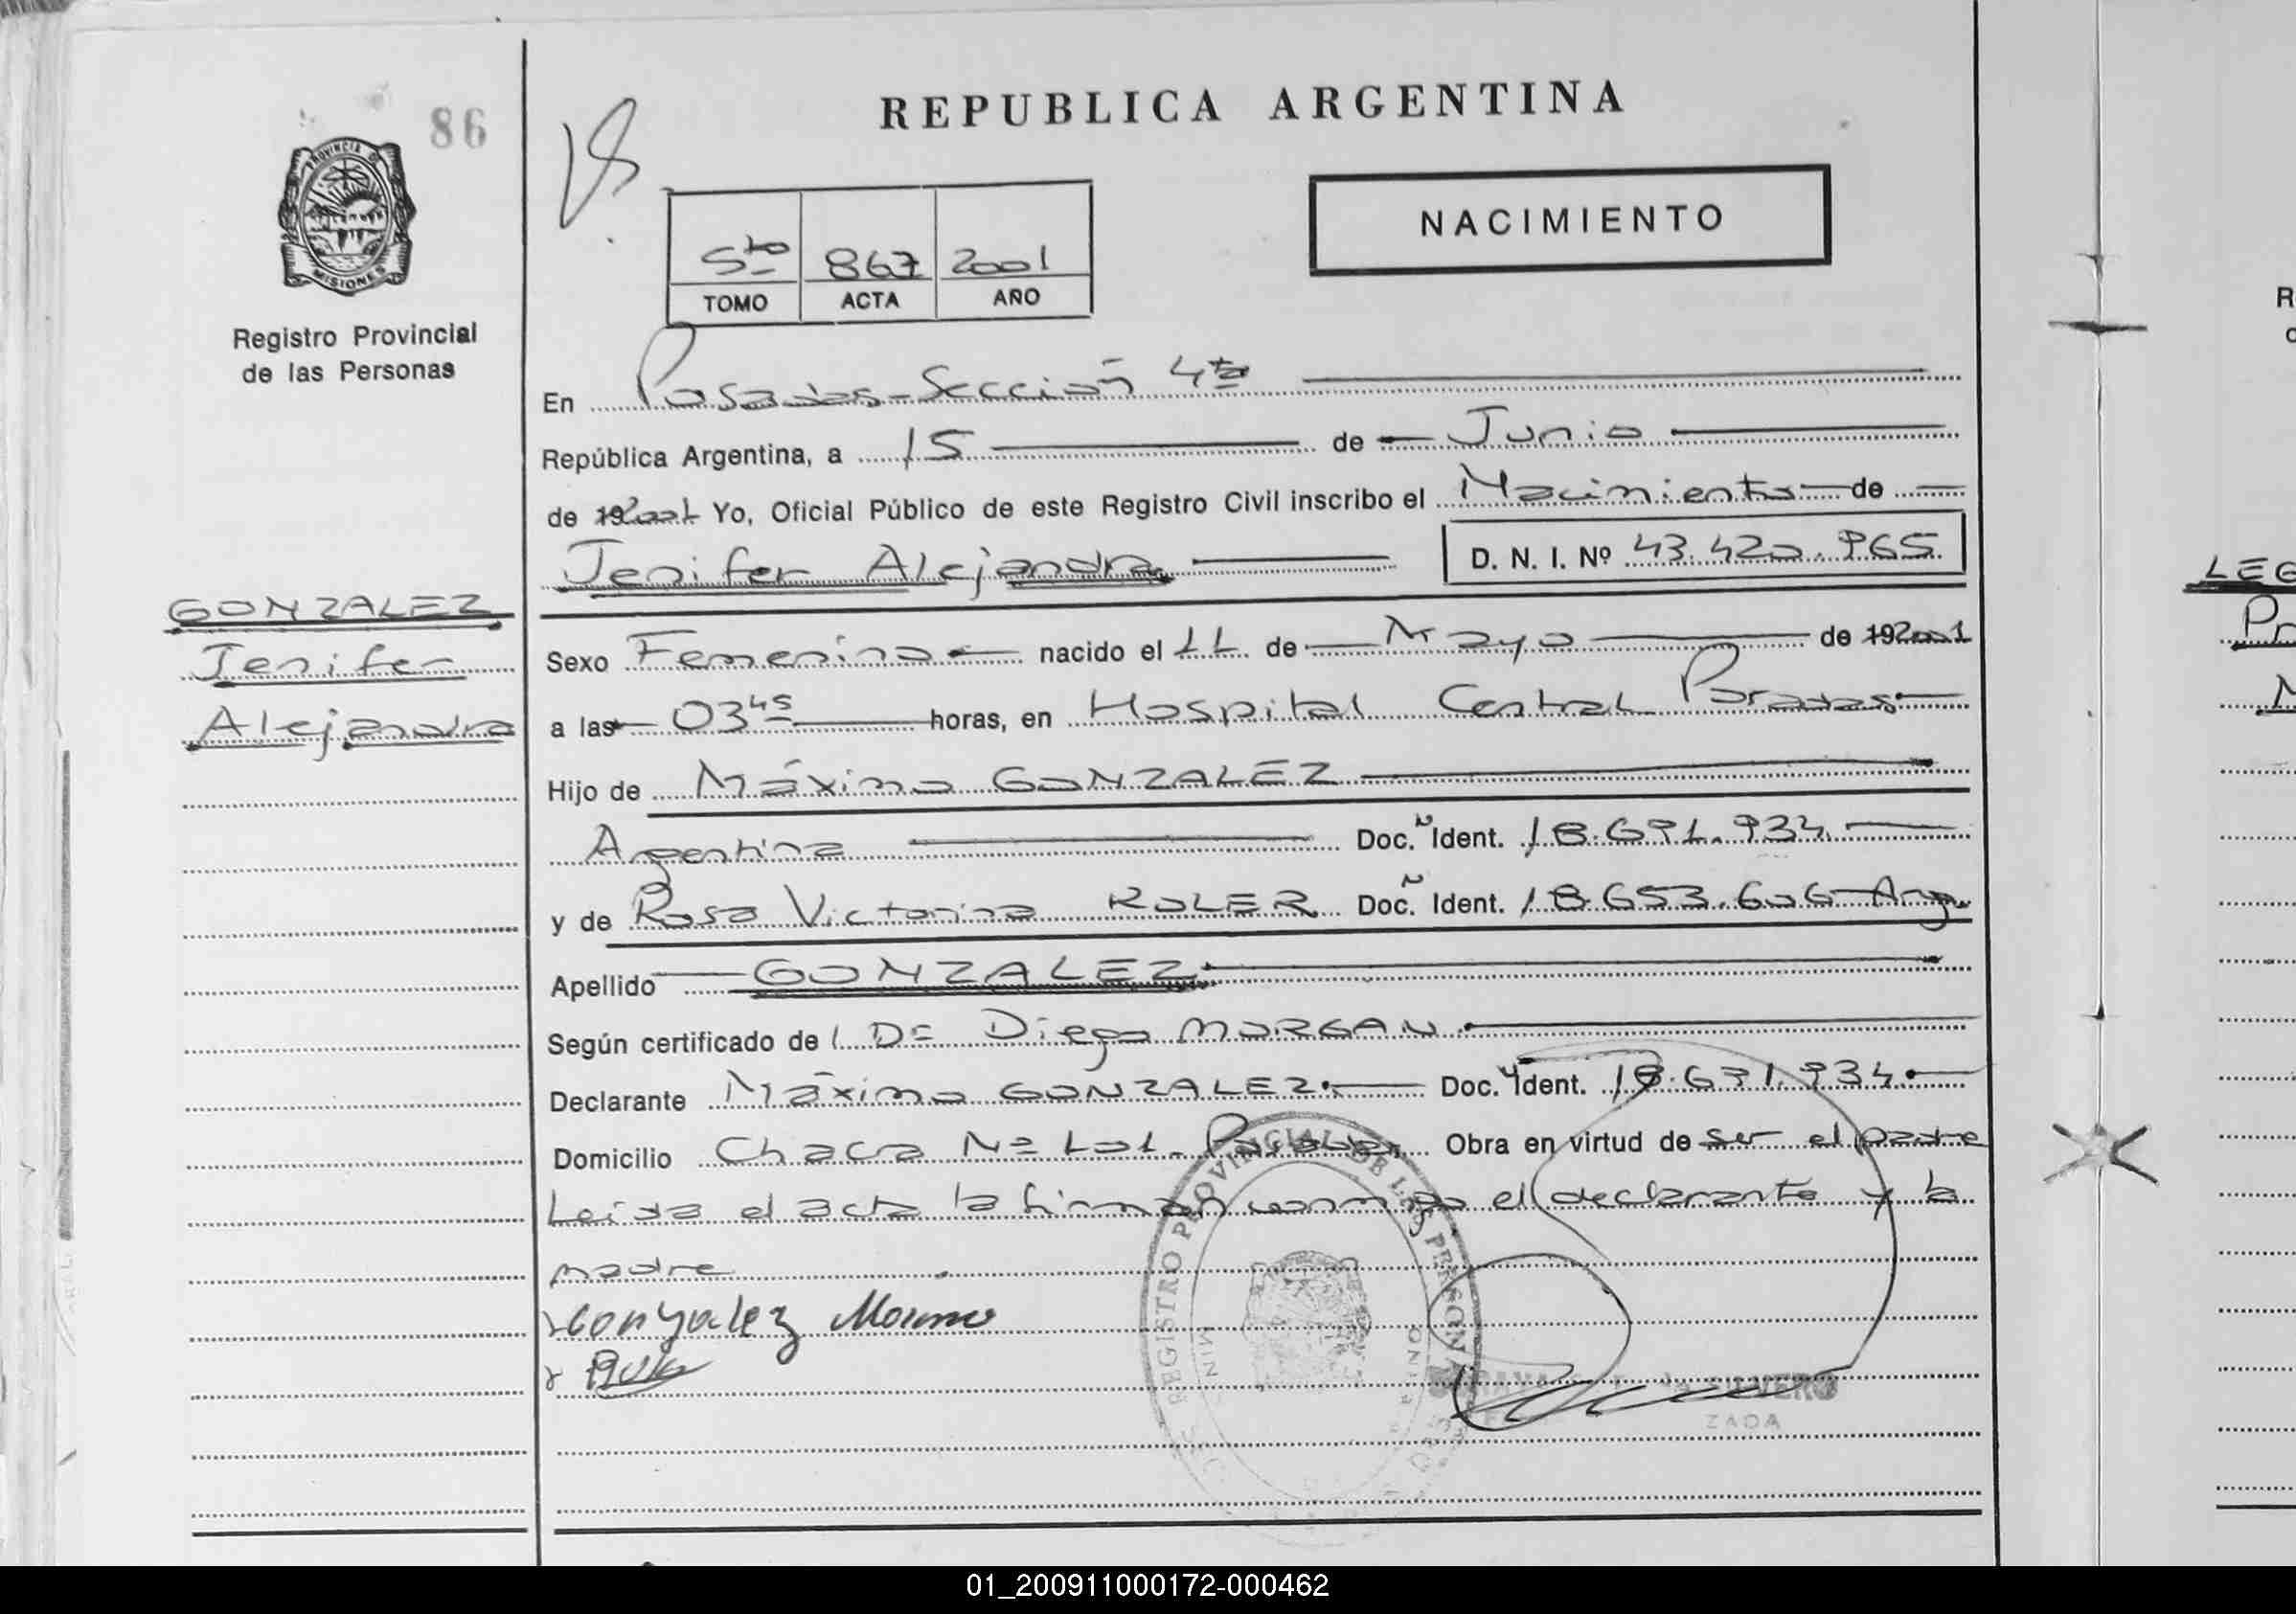 86
PROVINCIA DE
MISIONES
Registro Provincial
de las Personas
GONZALEZ
Jenifer
Alejandra
REPUBLICA ARGENTINA
NACIMIENTO
5to 867 2001
TOMO ACTA AÑO
En Posadas - Sección 4ta
República Argentina, a 15 de Junio
de 192001 Yo, Oficial Público de este Registro Civil inscribo el Nacimiento de
Jenifer Alejandra D. N. I. Nº 43.420.965.
Sexo Femenino nacido el 11 de Mayo de 192001
a las 03 45 horas, en Hospital Central Posadas
Hijo de Máximo GONZALEZ
Argentina Doc. Ident. 18.691.934
y de Rosa Victorina ROLER Doc. Ident. 18.653.606 Arg.
Apellido GONZALEZ
Según certificado de Diego MORGAN
Declarante Máximo GONZALEZ Doc. Ident. 18.691.934
Domicilio Chacra Nº 101 - Posadas Obra en virtud de ser el padre
Leida el acta la firman conmigo el declarante y la
madre
Gonzalez
REGISTRO PROVINCIAL DE LAS PERSONAS
LEG
Pr
01_200911000172-000462